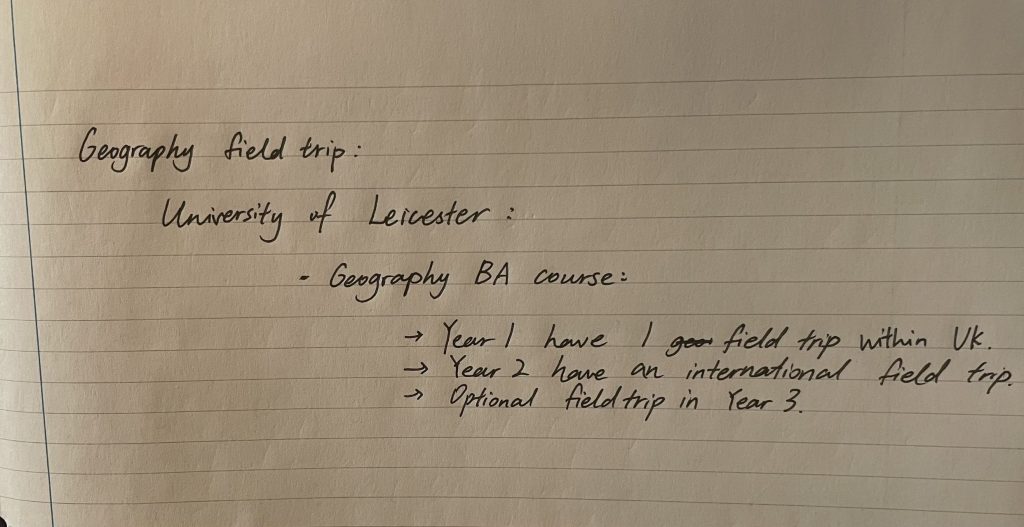 Geography field trip:
University of Leicester:
- Geography BA course:
→ Year 1 have 1 field trip within UK.
→ Year 2 have an international field trip.
→ Optional field trip in Year 3.